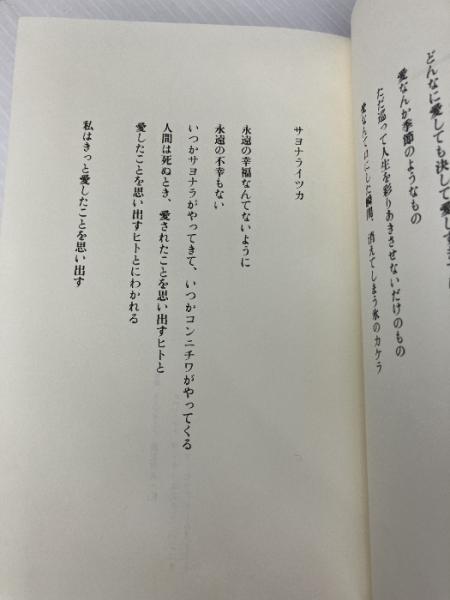 どんなに愛しても決して愛しす
愛なんか季節のようなもの
ただ巡って人生を彩りあきさせないだけのもの
愛なんて口にした瞬間、消えてしまう氷のカケラ
サヨナライツカ
永遠の幸福なんてないように
永遠の不幸もない
いつかサヨナラがやってきて、いつかコンニチワがやってくる
人間は死ぬとき、愛されたことを思い出すヒトと
愛したことを思い出すヒトとにわかれる
私はきっと愛したことを思い出す